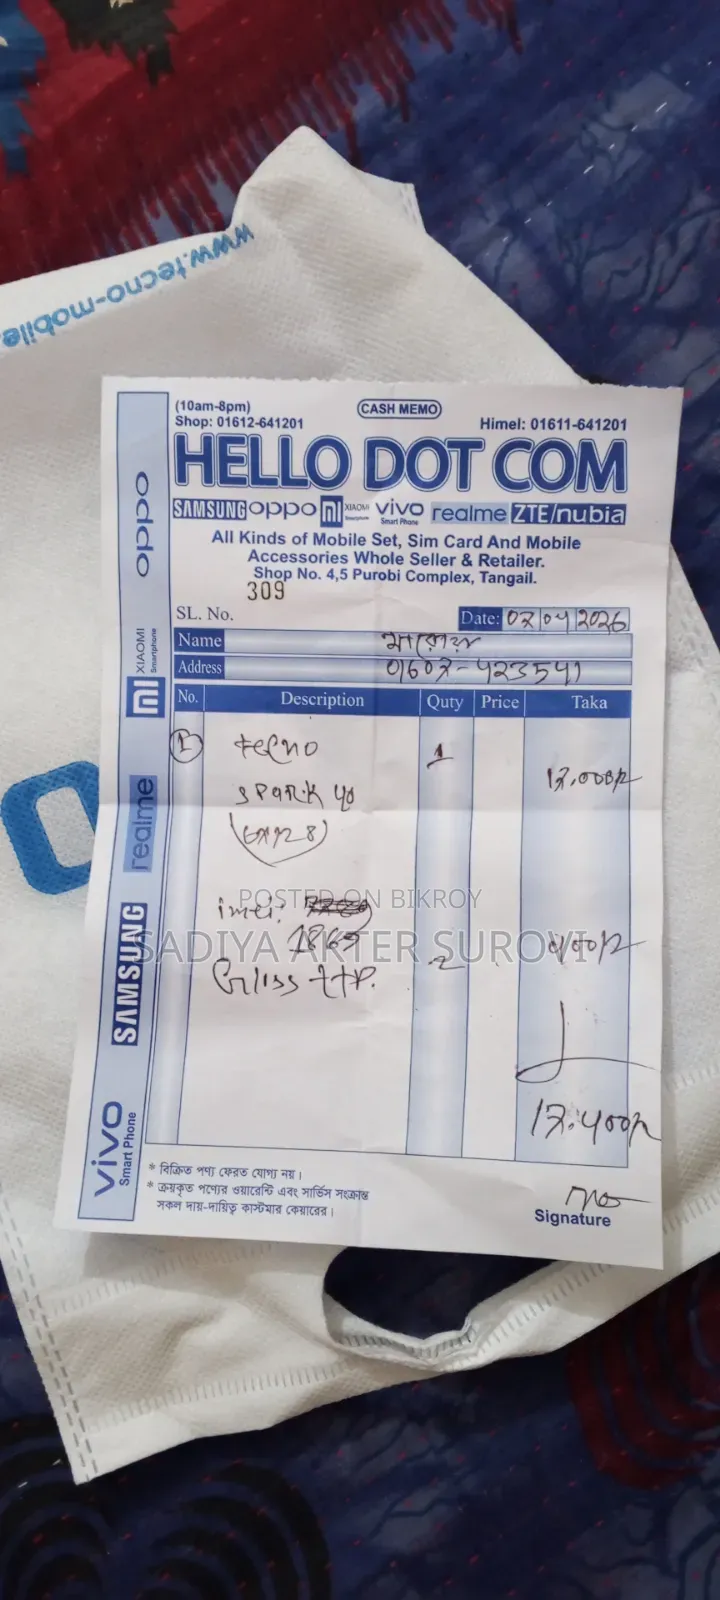 www.tecno-mobile.
(10am-8pm)
Shop: 01612-641201
CASH MEMO
Himel: 01611-641201
HELLO DOT COM
SAMSUNG oppo mi XIAOMI Smartphone vivo Smart Phone realme ZTE/nubia
All Kinds of Mobile Set, Sim Card And Mobile
Accessories Whole Seller & Retailer.
Shop No. 4,5 Purobi Complex, Tangail.
309
SL. No.
Date: 2026
Name
Address
No. Description Quty Price Taka
1 Tecno 1
Spark 40
imei:
Glass
POSTED ON BIKROY
SADIYA AKTER SUROVI
* বিক্রিত পণ্য ফেরত যোগ্য নয়।
* ক্রয়কৃত পণ্যের ওয়ারেন্টি এবং সার্ভিস সংক্রান্ত
সকল দায়-দায়িত্ব কাস্টমার কেয়ারের।
Signature
oppo
mi XIAOMI Smartphone
realme
SAMSUNG
vivo Smart Phone